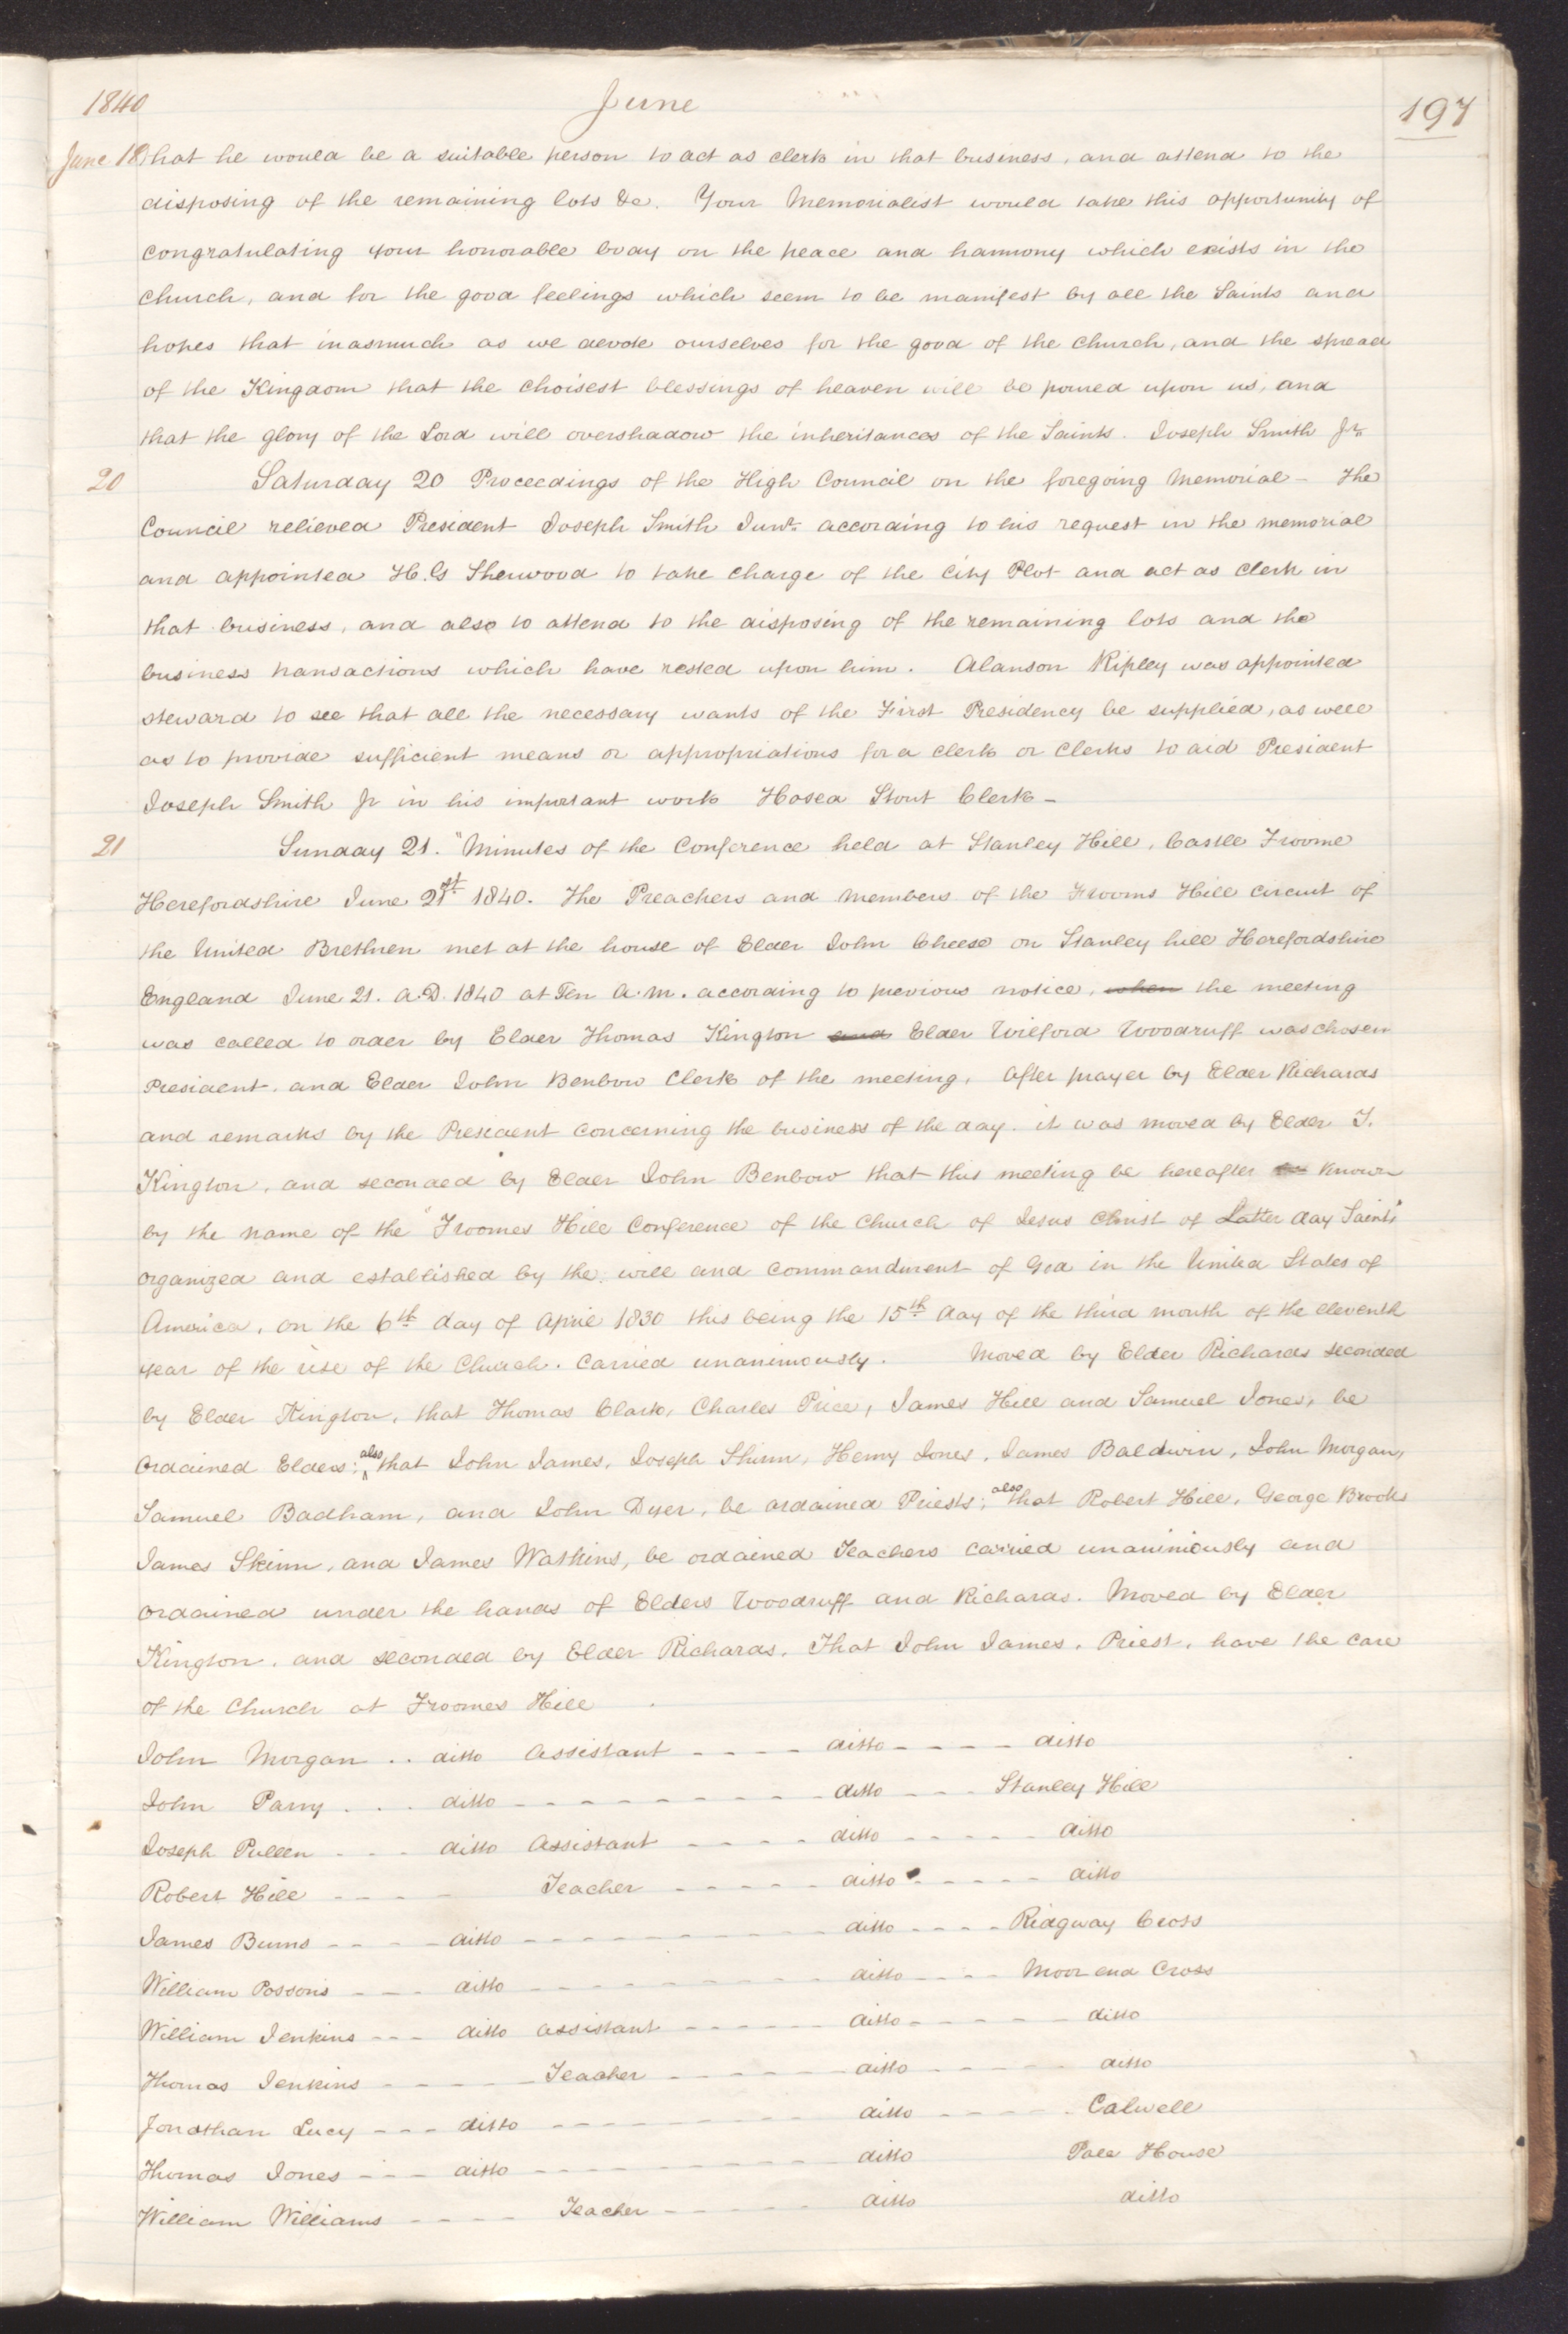 1840 June 197
June 18 that he would be a suitable person to act as clerk in that business, and attend to the
disposing of the remaining lots &c. Your Memorialist would take this opportunity of
congratulating your honorable body on the peace and harmony which exists in the
church, and for the good feelings which seem to be manifest by all the Saints and
hopes that inasmuch as we devote ourselves for the good of the church, and the spread
of the Kingdom that the choisest blessings of heaven will be poured upon us, and
that the glory of the Lord will overshadow the inheritances of the Saints. Joseph Smith Jr.
20 Saturday 20 Proceedings of the High Council on the foregoing Memorial — The
Council relieved President Joseph Smith Junr. according to his request in the memorial
and appointed H. G Sherwood to take charge of the City Plot and act as Clerk in
that business, and also to attend to the disposing of the remaining lots and the
business transactions which have rested upon him. Alanson Ripley was appointed
steward to see that all the necessary wants of the First Presidency be supplied, as well
as to provide sufficient means or appropriations for a clerk or Clerks to aid President
Joseph Smith Jr in his important work Hosea Stout Clerk —
21 Sunday 21. "Minutes of the Conference held at Stanley Hill, Castle Froome
Herefordshire June 21st 1840. The Preachers and members of the Frooms Hill circuit of
the United Brethren met at the house of Elder John Cheese on Stanley hill Herefordshire
England June 21. A.D. 1840 at Ten A.M. according to previous notice, when the meeting
was called to order by Elder Thomas Kington and Elder Wilford Woodruff was chosen
President, and Elder John Benbow Clerk of the meeting. After prayer by Elder Richards
and remarks by the President concerning the business of the day. it was moved by Elder T.
Kington, and seconded by Elder John Benbow that this meeting be hereafter known
by the name of the "Froomes Hill Conference of the Church of Jesus Christ of Latter day Saints"
organized and established by the will and commandment of God in the United States of
America, on the 6th day of April 1830 this being the 15th day of the third month of the eleventh
year of the rise of the Church. Carried unanimously. Moved by Elder Richards seconded
by Elder Kington, that Thomas Clark, Charles Price, James Hill and Samuel Jones, be
ordained Elders; also that John James, Joseph Shinn, Henry Jones, James Baldwin, John Morgan,
Samuel Badham, and John Dyer, be ordained Priests; also that Robert Hill, George Brooks
James Skinn, and James Watkins, be ordained Teachers carried unanimously and
ordained under the hands of Elders Woodruff and Richards. Moved by Elder
Kington, and seconded by Elder Richards, That John James, Priest, have the care
of the Church at Froomes Hill
John Morgan .. ditto Assistant - - - - ditto - - - - ditto
John Parry . . . ditto - - - - - - - - - ditto - - - Stanley Hill
Joseph Pullen - - - ditto Assistant - - - - ditto - - - - - ditto
Robert Hill - - - - Teacher - - - - - ditto - - - - - ditto
James Burns - - - - ditto - - - - - - - - - ditto - - - - Ridgway Cross
William Possons - - - ditto - - - - - - - - - ditto - - - - Moor end Cross
William Jenkins - - - ditto assistant - - - - - ditto - - - - - ditto
Thomas Jenkins - - - - - Teacher - - - - - ditto - - - - - ditto
Jonathan Lucy - - - ditto - - - - - - - - - ditto - - - - - Calwell
Thomas Jones - - - ditto - - - - - - - - - ditto Pale House
William Williams - - - - Teacher - - - - - ditto ditto